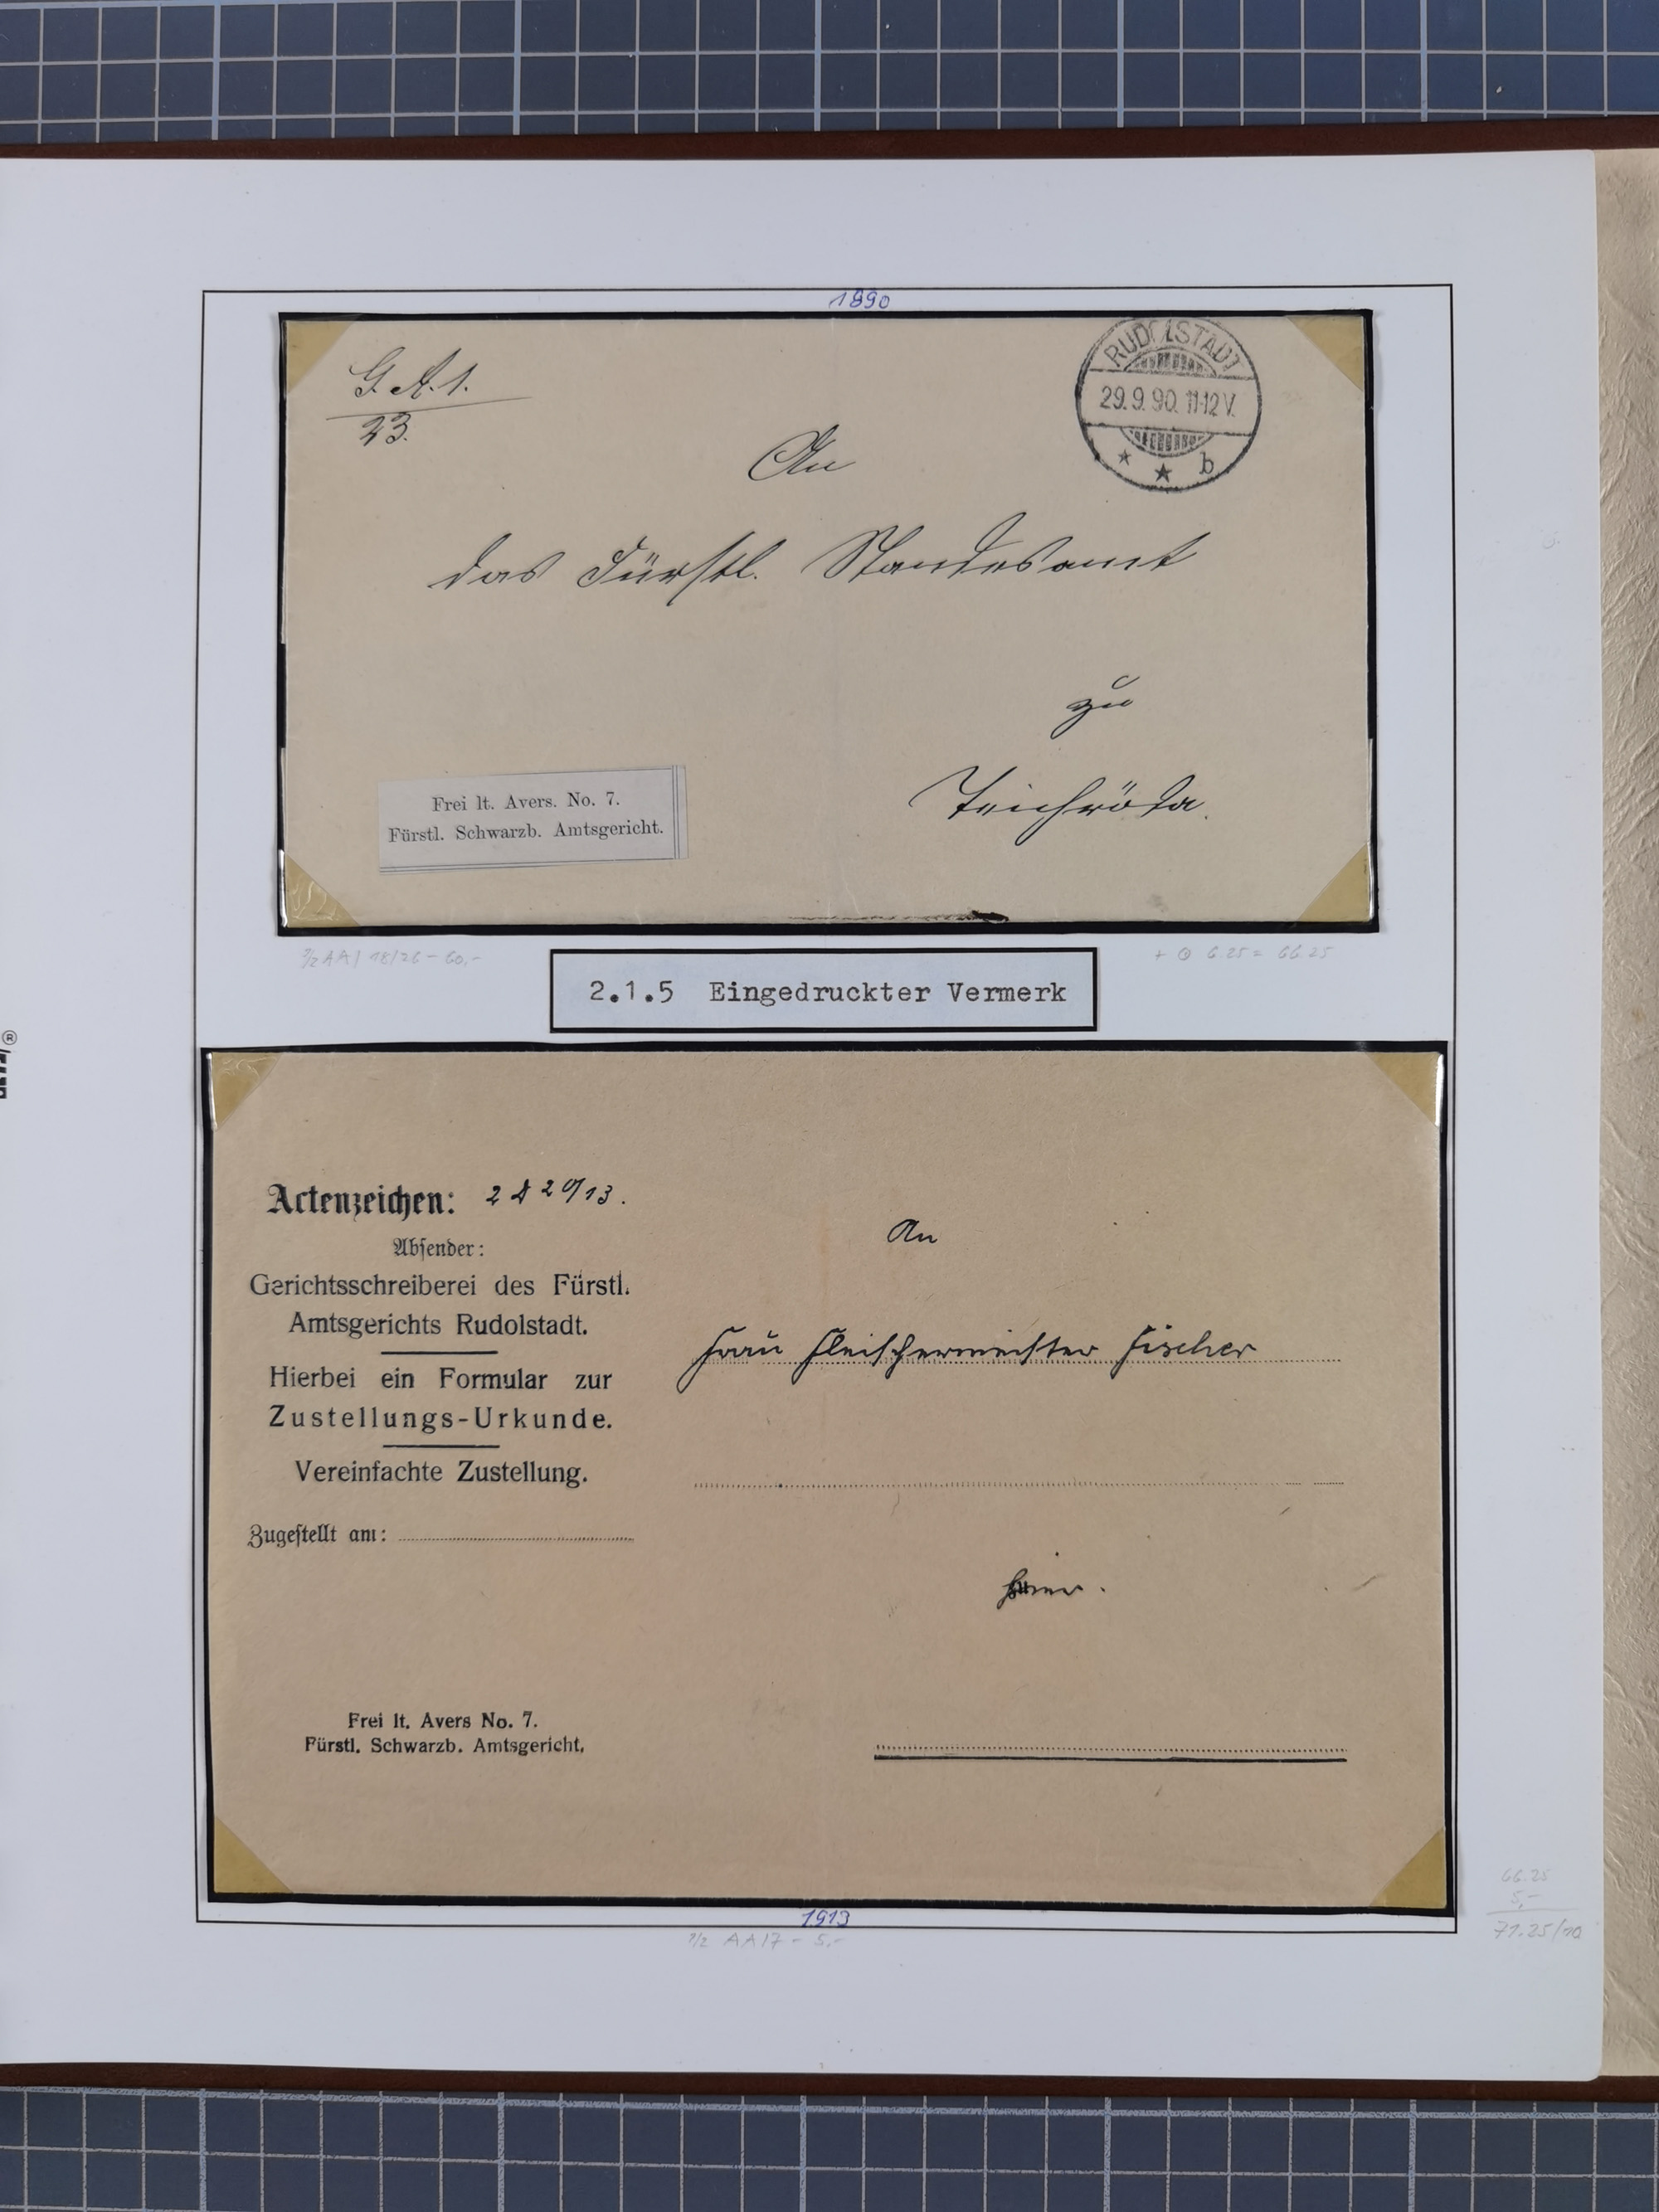 1890
G. A. 1.
23.
RUDOLSTADT
29.9.90. 11-12 V.
* * b
An
das Fürstl. Standesamt
zu
Teichröda.
Frei lt. Avers. No. 7.
Fürstl. Schwarzb. Amtsgericht.
+ 6.25 = 66.25
2.1.5 Eingedruckter Vermerk
Actenzeichen:
Absender:
Gerichtsschreiberei des Fürstl.
Amtsgerichts Rudolstadt.
Hierbei ein Formular zur
Zustellungs-Urkunde.
Vereinfachte Zustellung.
Zugestellt am:
An
Frau Fleischermeister Fischer
hier.
Frei lt. Avers No. 7.
Fürstl. Schwarzb. Amtsgericht.
1913
66.25
5,-
71.25/10